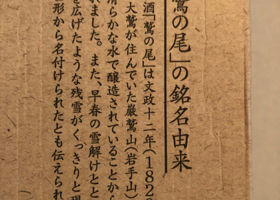 鷲の尾」の銘名由来
酒「鷲の尾」は文政十二年(182
大鷲が住んでいた巌鷲山(岩手山)
清らかな水で醸造されていることから
れました。また、早春の雪解けとと
を広げたような残雪がくっきりと現
形から名付けられたとも伝えられ